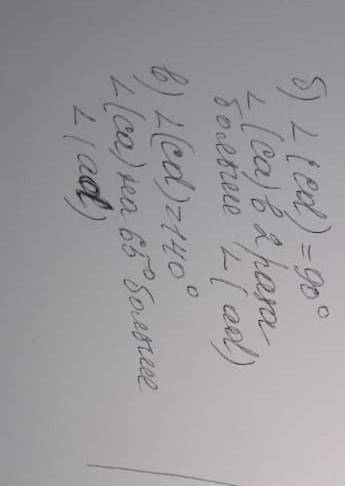 б) ∠(cd) = 90°
∠(ca) в 2 раза
больше ∠(ad)
в) ∠(cd) = 140°
∠(ca) на 65° больше
∠(ad)